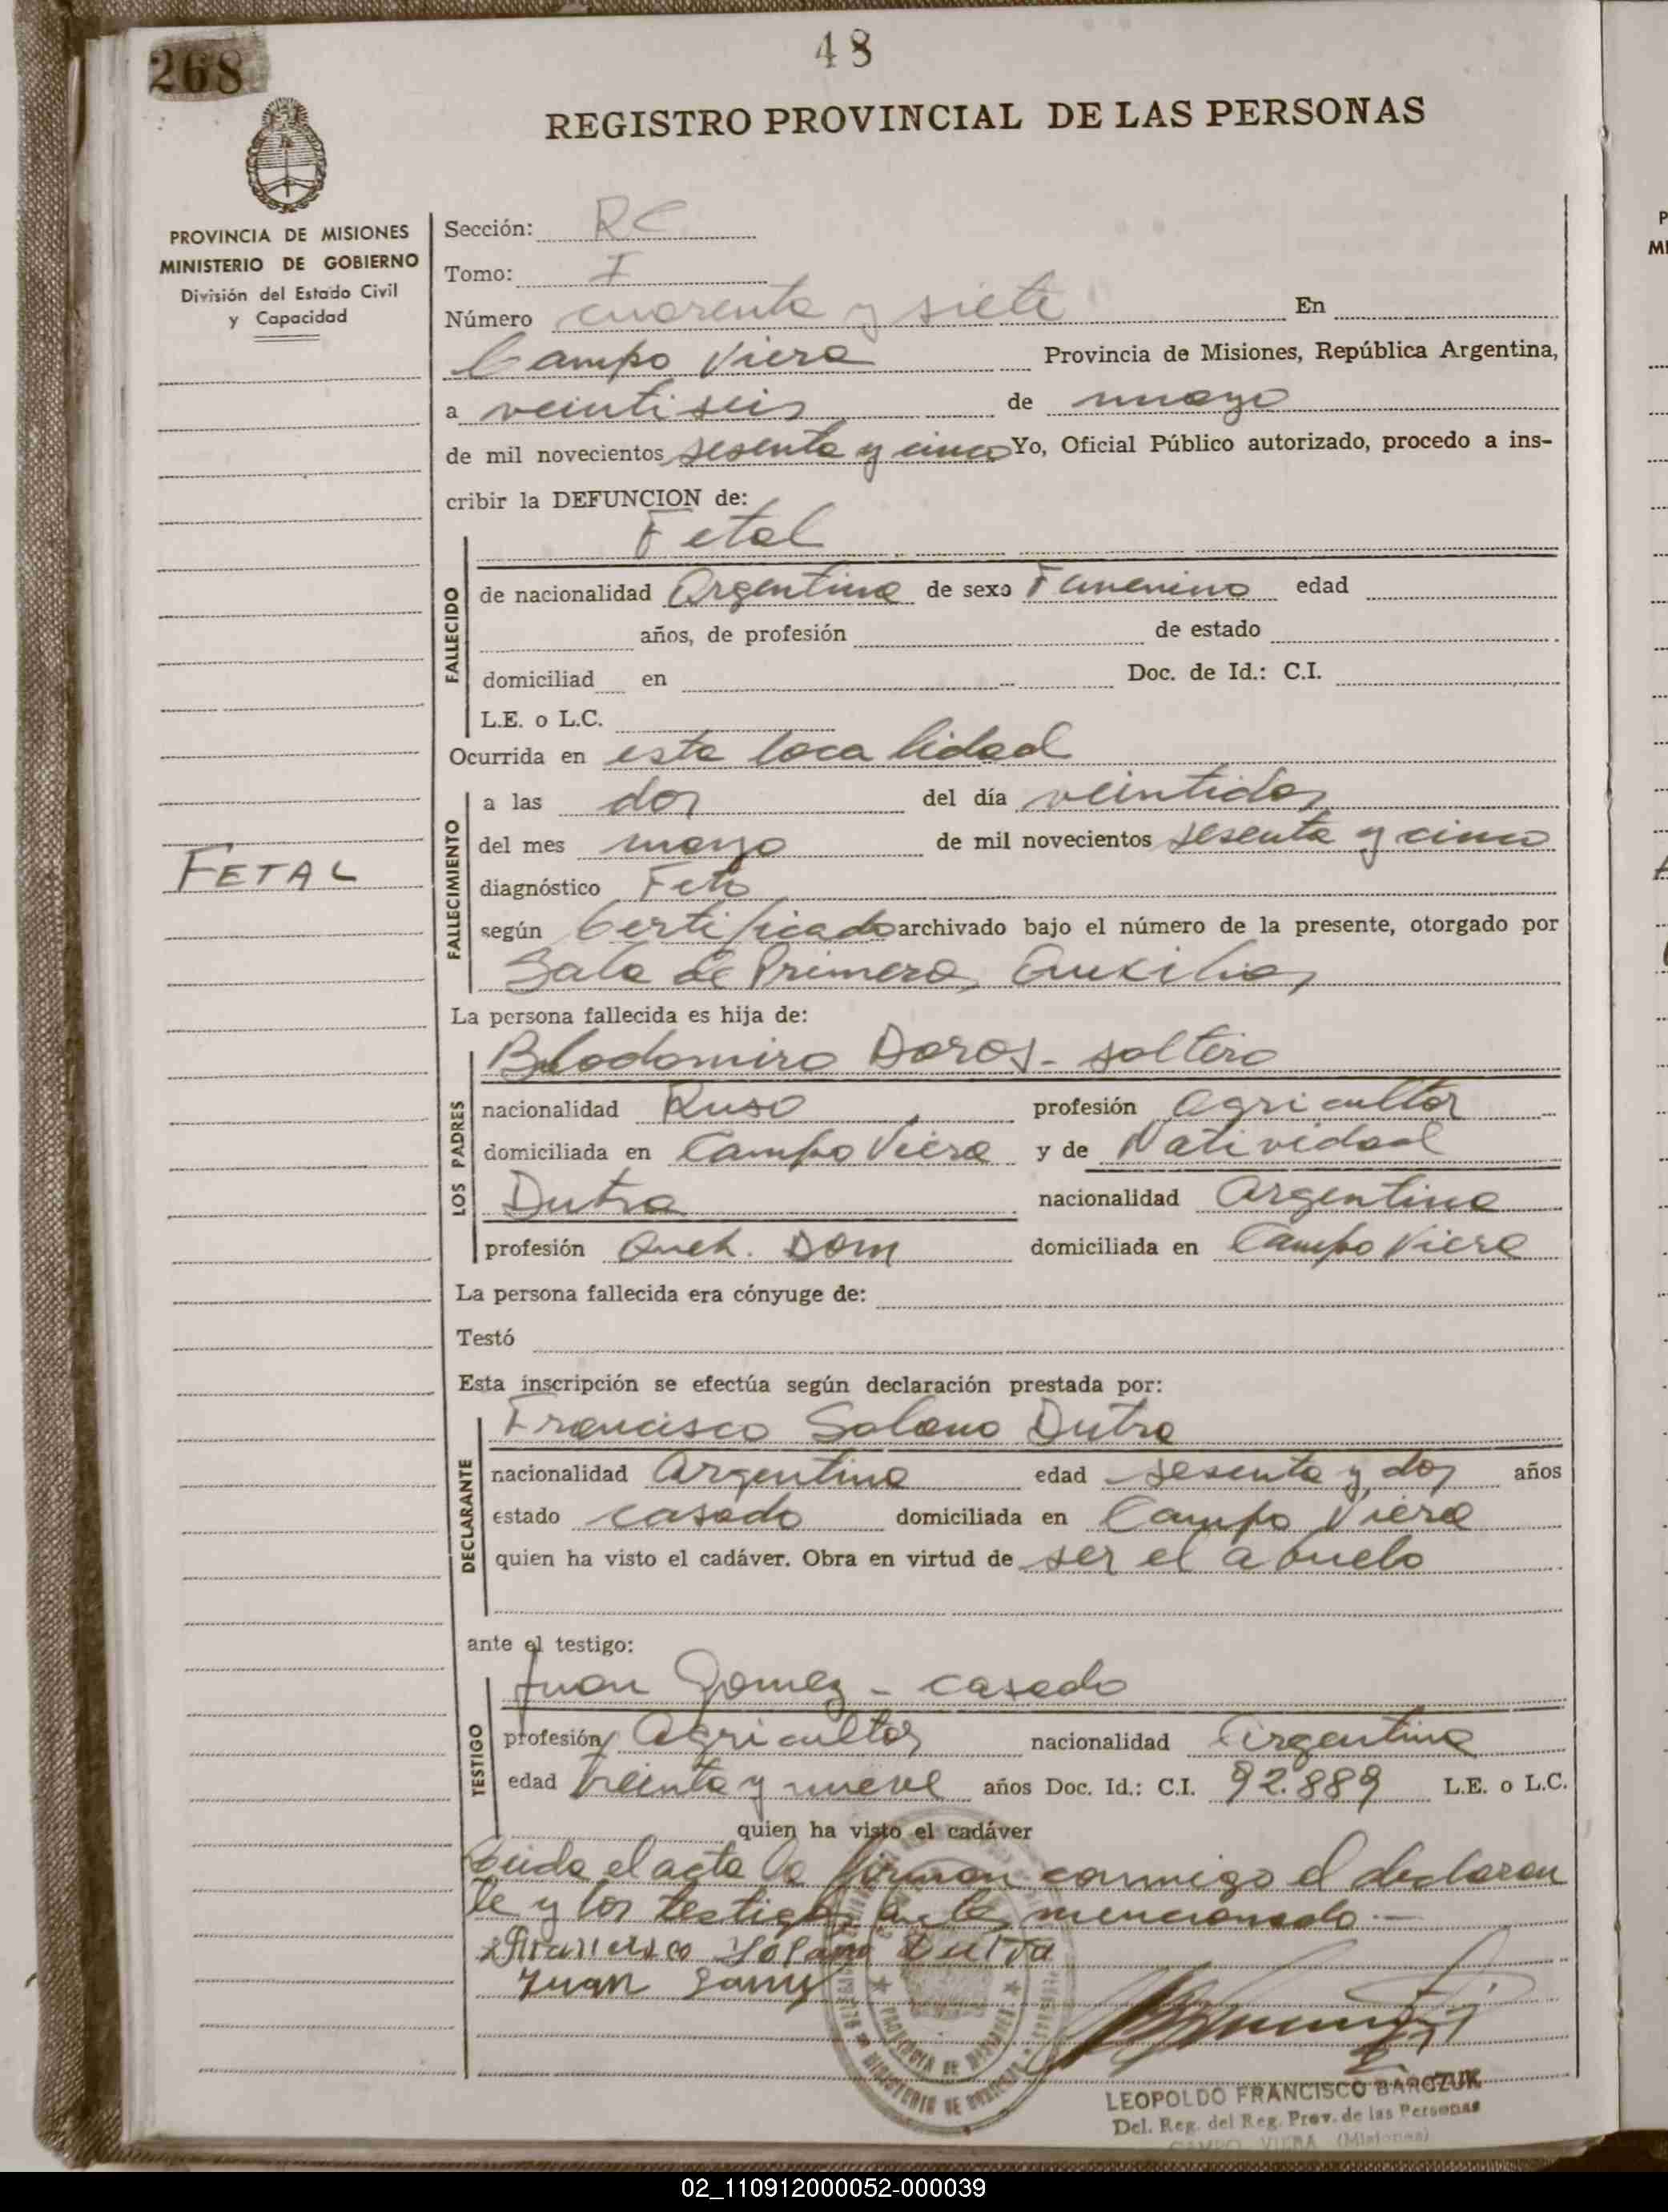 268
48
REGISTRO PROVINCIAL DE LAS PERSONAS
PROVINCIA DE MISIONES
MINISTERIO DE GOBIERNO
División del Estado Civil
y Capacidad
Sección: RC
Tomo: I
Número cuarenta y siete En
Campo Viera Provincia de Misiones, República Argentina,
a veintiseis de mayo
de mil novecientos sesenta y cinco Yo, Oficial Público autorizado, procedo a ins-
cribir la DEFUNCION de:
Fetal
FALLECIDO
de nacionalidad Argentina de sexo Femenino edad
años, de profesión de estado
domiciliad en Doc. de Id.: C.I.
L.E. o L.C.
Ocurrida en esta localidad
FALLECIMIENTO
a las dos del día veintidos
del mes mayo de mil novecientos sesenta y cinco
FETAL
diagnóstico Feto
según Certificado archivado bajo el número de la presente, otorgado por
Sala de Primeros Auxilios
La persona fallecida es hija de:
LOS PADRES
Blodomiro Doros - soltero
nacionalidad Ruso profesión agricultor
domiciliada en Campo Viera y de Natividad
Dutra nacionalidad Argentina
profesión Queh. Dom domiciliada en Campo Viera
La persona fallecida era cónyuge de:
Testó
Esta inscripción se efectúa según declaración prestada por:
DECLARANTE
Francisco Solano Dutra
nacionalidad Argentina edad sesenta y dos años
estado casado domiciliada en Campo Viera
quien ha visto el cadáver. Obra en virtud de ser el abuelo
ante el testigo:
TESTIGO
Juan Gomez - casado
profesión Agricultor nacionalidad Argentina
edad treinta y nueve años Doc. Id.: C.I. 92.889 L.E. o L.C.
quien ha visto el cadáver
Leida el acta la firman conmigo el declaran
te y los testigos mencionado.-
Francisco Solano Dutra
Juan
PROVINCIA DE MISIONES
MINISTERIO DE GOBIERNO
LEOPOLDO FRANCISCO BARCZUK
Del. Reg. del Reg. Prov. de las Personas
CAMPO VIERA (Misiones)
02_110912000052-000039